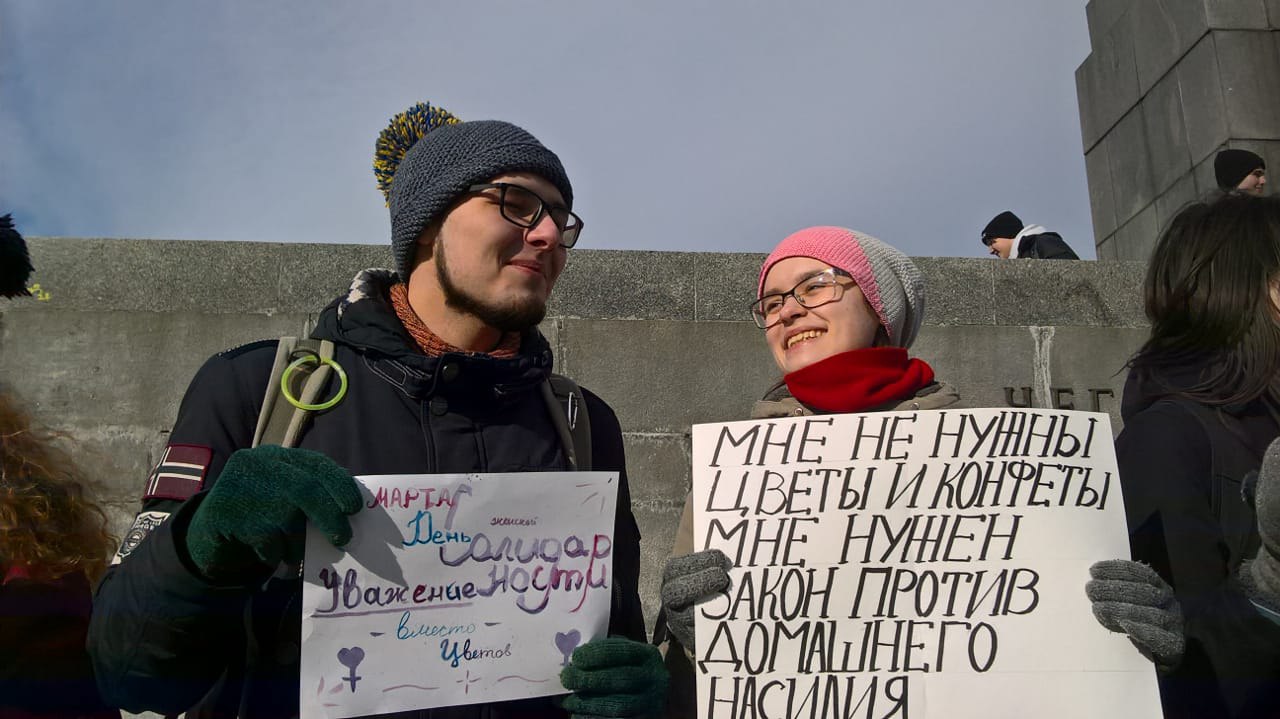 МАРТА
День женской
Солидар
ности
Уважение
вместо
Цветов
МНЕ НЕ НУЖНЫ
ЦВЕТЫ И КОНФЕТЫ
МНЕ НУЖЕН
ЗАКОН ПРОТИВ
ДОМАШНЕГО
НАСИЛИЯ
ЧЕГ